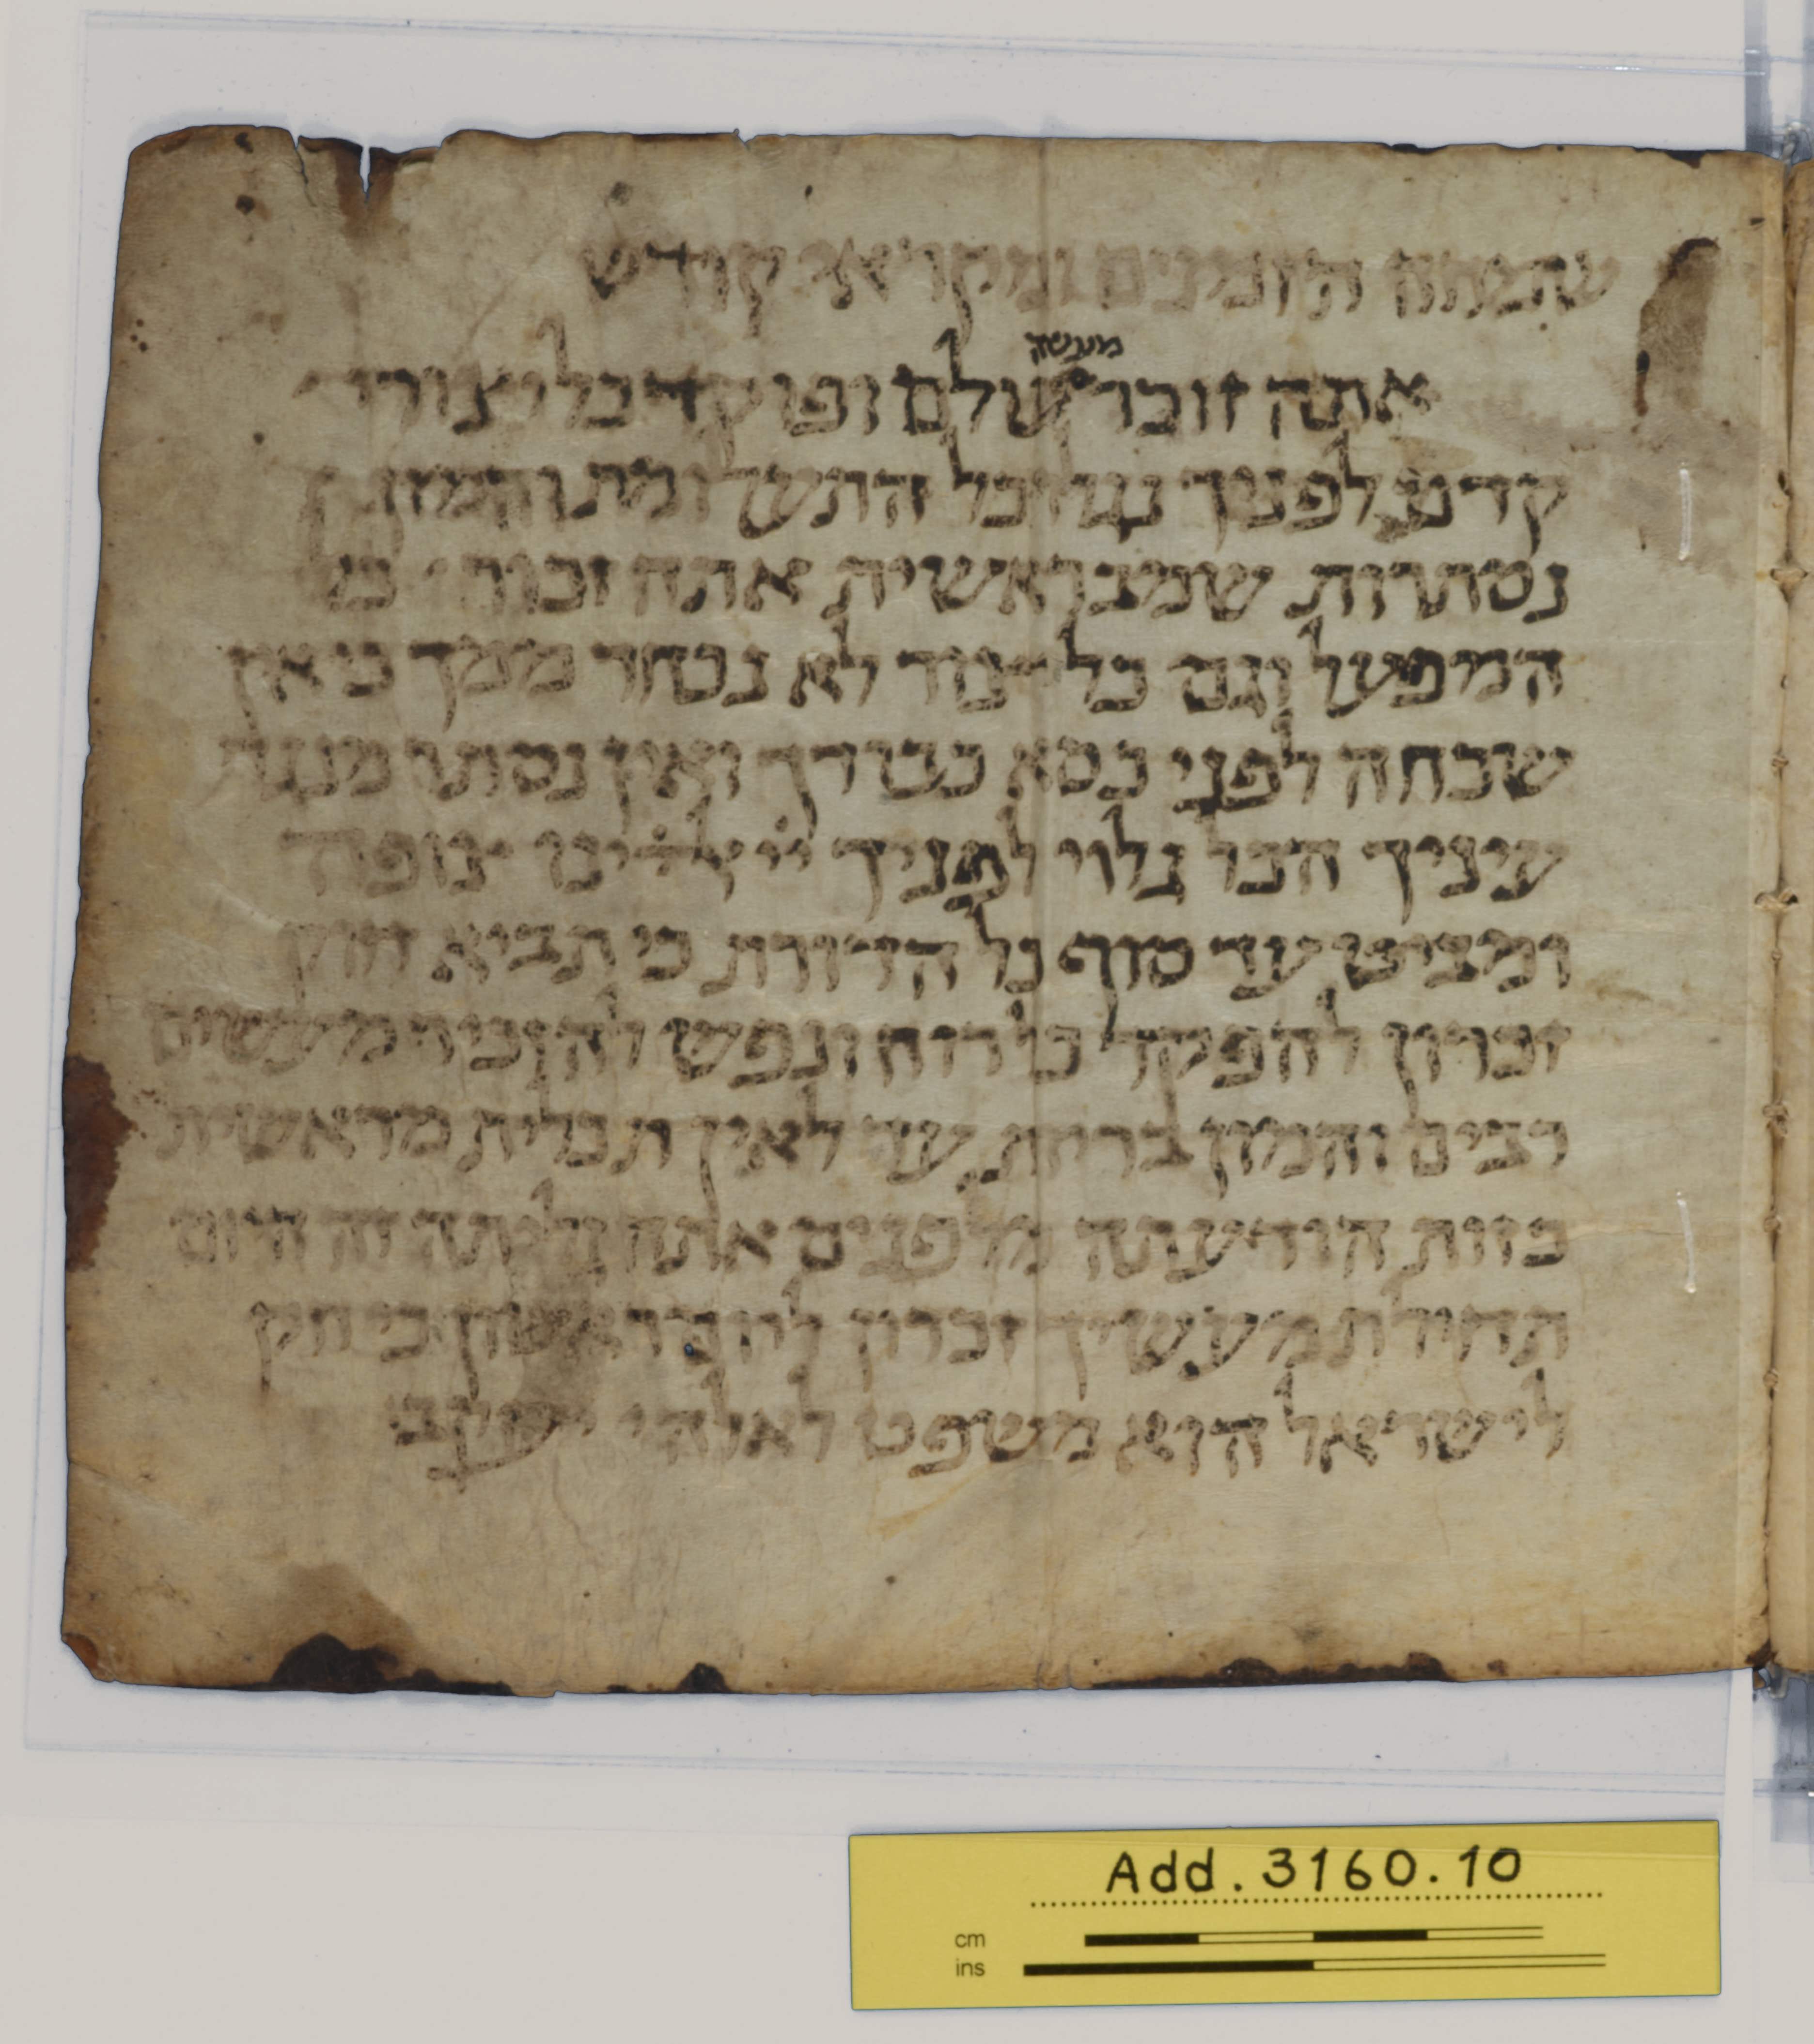 שמחה הזמנים ומקראי קודש
מעשה
אתה זוכר עולם ופוקד כל יצורי
קדם לפניך נגלו כל התעלומות והמון
נסתרות שמבראשית אתה זוכר כל
המפעל וגם כל יצור לא נכחד ממך כי אין
שכחה לפני כסא כבודך ואין נסתר מנגד
עיניך הכל גלוי לפניך יי אלהינו צופה
ומביט עד סוף כל הדורות כי תביא חוק
זכרון להפקד כל רוח ונפש להזכיר מעשים
רבים והמון בריות עד לאין תכלית מראשית
כזות הודעתה מלפנים אתה גליתה זה היום
תחילת מעשיך זכרון ליום ראשון כי חק
לישראל הוא משפט לאלהי יעקב
Add.3160.10
cm
ins